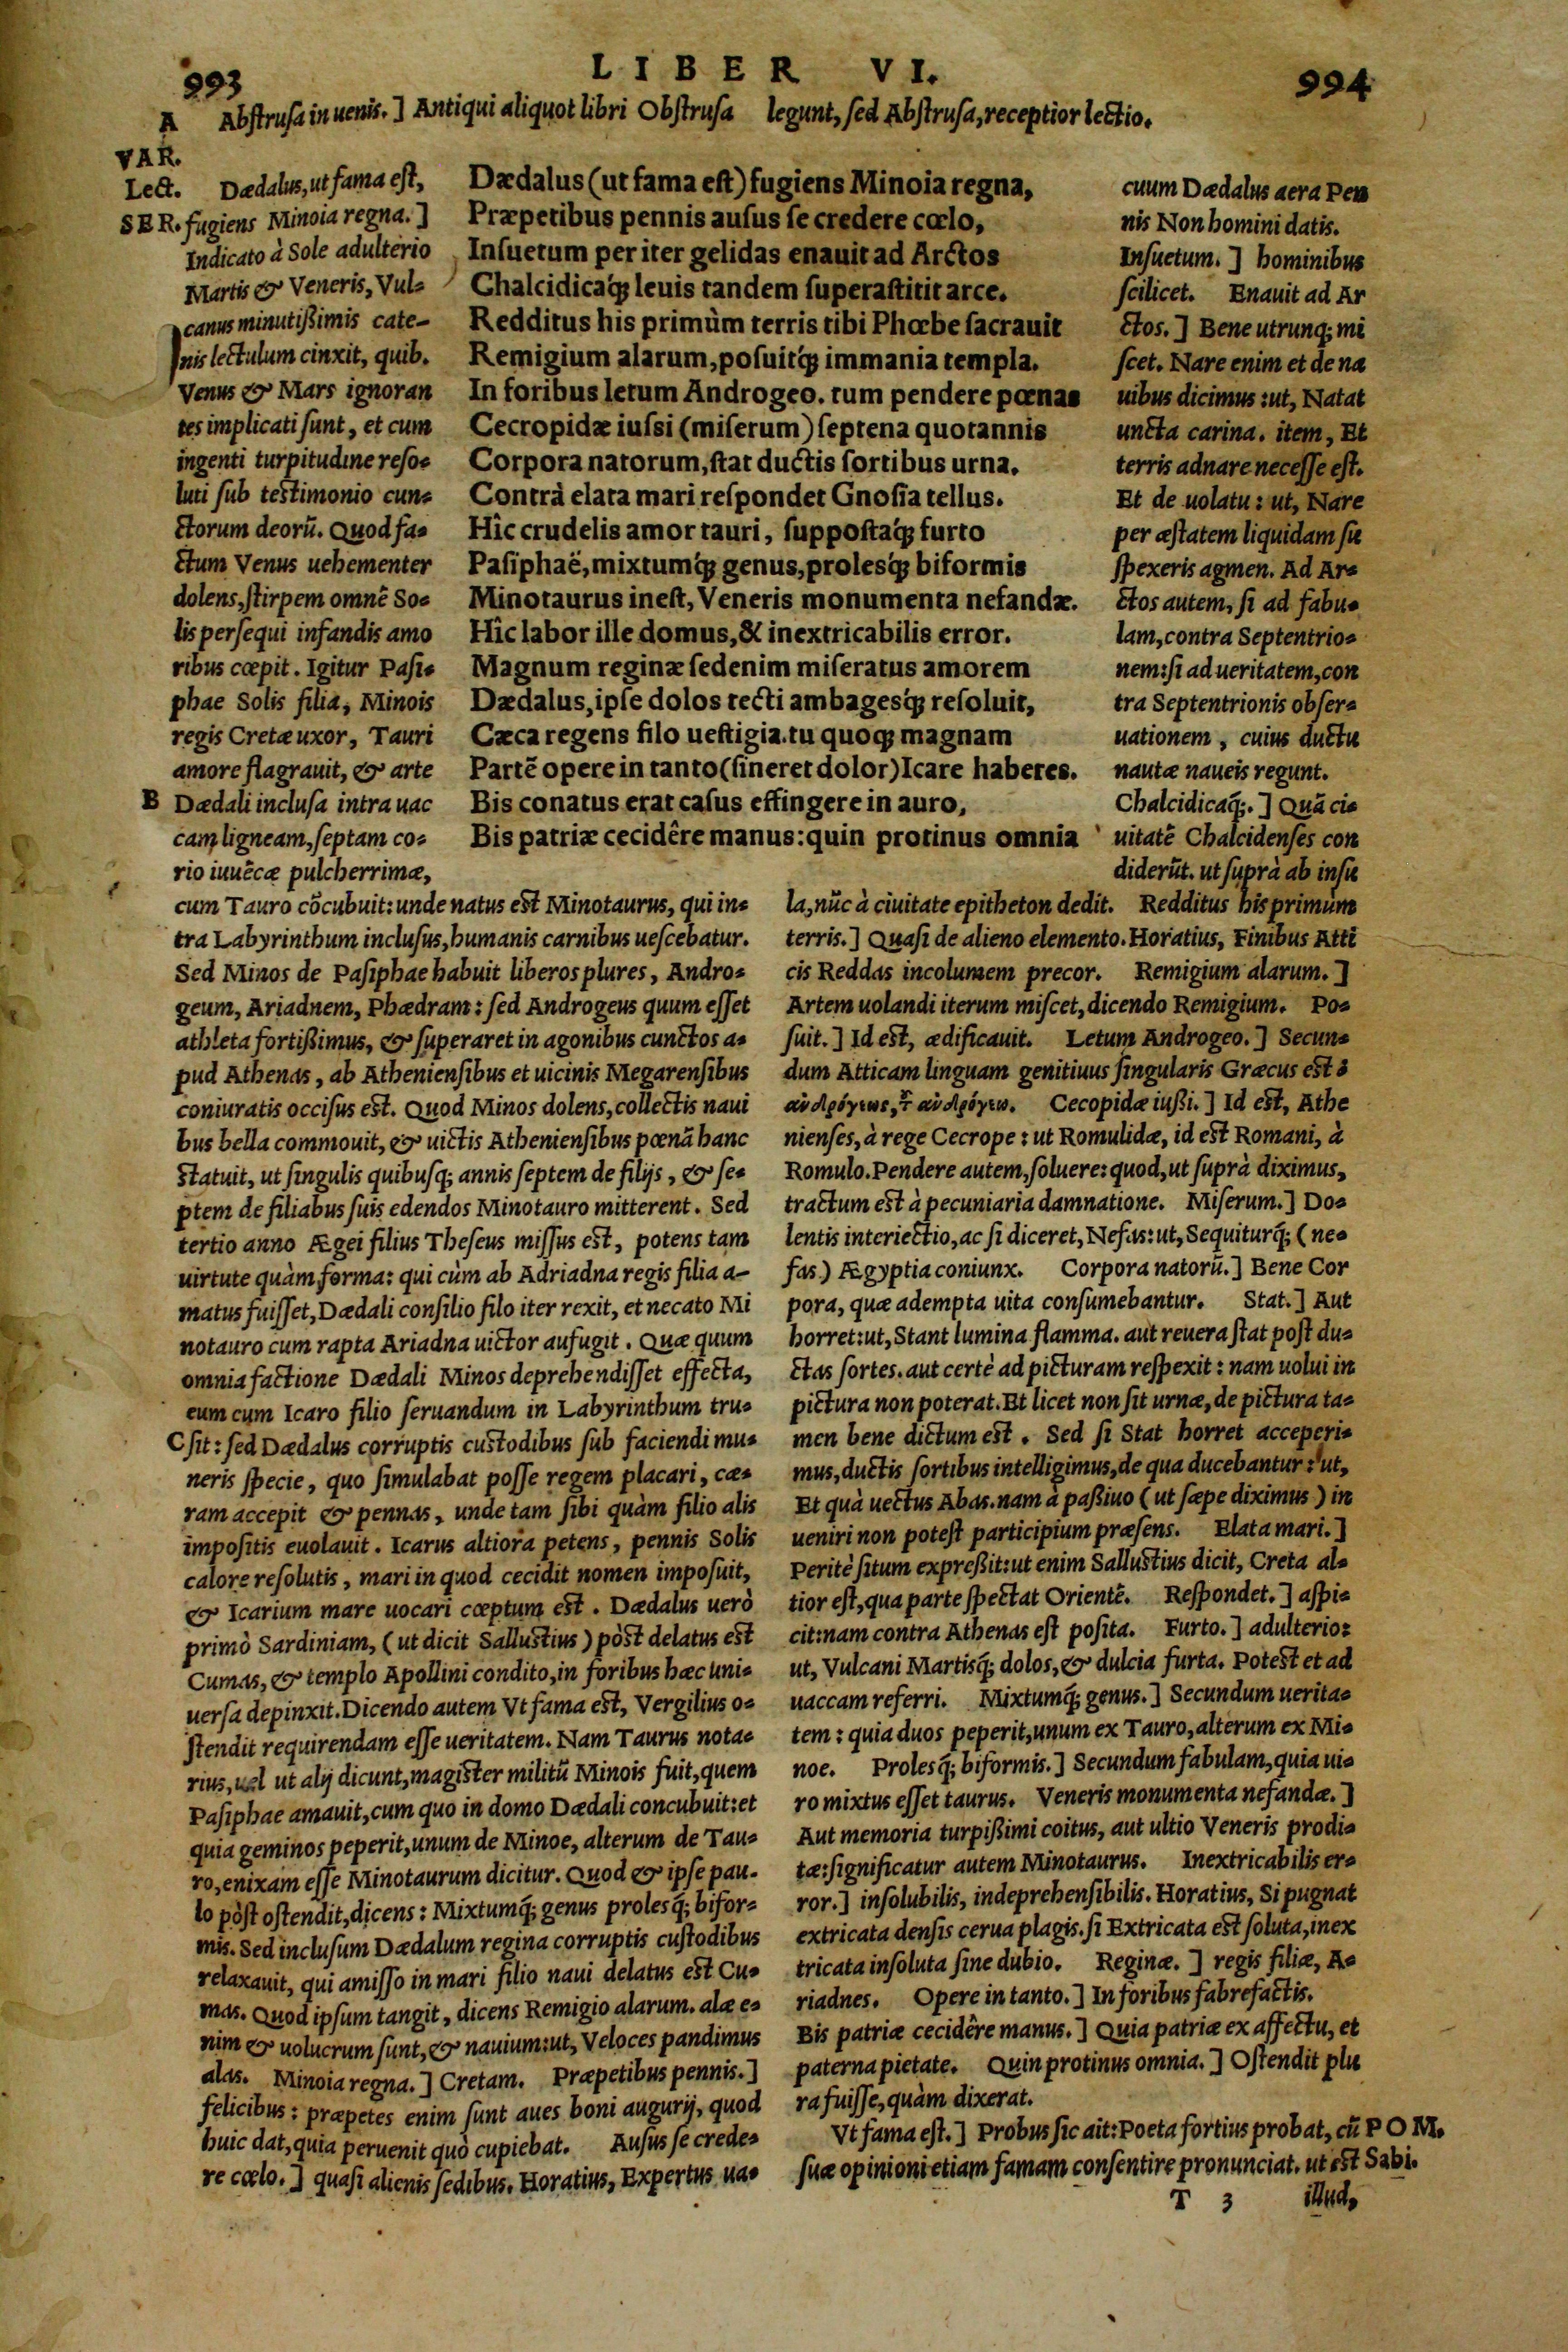 993
LIBER VI.
994
A Abſtruſa in uenis.] Antiqui aliquot libri Obſtruſa legunt, ſed Abſtruſa, receptior lectio.
VAR.
Lect.
SER.
Dædalus, ut fama eſt,
fugiens Minoia regna.]
Indicato à Sole adulterio
Martis & Veneris, Vul-
canus minutißimis cate-
nis lectulum cinxit, quib.
Venus & Mars ignoran
tes implicati ſunt, et cum
ingenti turpitudine reſo-
luti ſub teſtimonio cun-
ctorum deorũ. Quod fa-
ctum Venus uehementer
dolens, ſtirpem omnẽ So-
lis perſequi infandis amo
ribus cœpit. Igitur Paſi-
phae Solis filia, Minois
regis Cretæ uxor, Tauri
amore flagrauit, & arte
B Dædali incluſa intra uac
cam ligneam, ſeptam co-
rio iuuẽcæ pulcherrimæ,
Dædalus (ut fama eſt) fugiens Minoia regna,
Præpetibus pennis auſus ſe credere cœlo,
Inſuetum per iter gelidas enauit ad Arctos
Chalcidicaq́; leuis tandem ſuperaſtitit arce.
Redditus his primùm terris tibi Phœbe ſacrauit
Remigium alarum, poſuitq́; immania templa.
In foribus letum Androgeo. tum pendere pœnas
Cecropidæ iuſsi (miſerum) ſeptena quotannis
Corpora natorum, ſtat ductis ſortibus urna.
Contrà elata mari reſpondet Gnoſia tellus.
Hîc crudelis amor tauri, ſuppoſtaq́; furto
Paſiphaë, mixtumq́; genus, prolesq́; biformis
Minotaurus ineſt, Veneris monumenta nefandæ.
Hîc labor ille domus, & inextricabilis error.
Magnum reginæ ſedenim miſeratus amorem
Dædalus, ipſe dolos tecti ambagesq́; reſoluit,
Cæca regens filo ueſtigia. tu quoq; magnam
Partẽ opere in tanto (ſineret dolor) Icare haberes.
Bis conatus erat caſus effingere in auro,
Bis patriæ cecidêre manus: quin protinus omnia
cuum Dædalus aera Pen
nis Non homini datis.
Inſuetum.] hominibus
ſcilicet. Enauit ad Ar
ctos.] Bene utrunq; mi
ſcet. Nare enim et de na
uibus dicimus: ut, Natat
uncta carina. item, Et
terris adnare neceſſe eſt.
Et de uolatu: ut, Nare
per æſtatem liquidam ſu
ſpexeris agmen. Ad Ar-
ctos autem, ſi ad fabu-
lam, contra Septentrio-
nem: ſi ad ueritatem, con
tra Septentrionis obſer-
uationem, cuius ductu
nautæ naueis regunt.
Chalcidicaq́;.] Quã ci-
uitatẽ Chalcidenſes con
diderũt. ut ſuprà ab inſu
cum Tauro cõcubuit: unde natus eſt Minotaurus, qui in-
tra Labyrinthum incluſus, humanis carnibus ueſcebatur.
Sed Minos de Paſiphae habuit liberos plures, Andro-
geum, Ariadnem, Phædram: ſed Androgeus quum eſſet
athleta fortißimus, & ſuperaret in agonibus cunctos a-
pud Athenas, ab Athenienſibus et uicinis Megarenſibus
coniuratis occiſus eſt. Quod Minos dolens, collectis naui
bus bella commouit, & uictis Athenienſibus pœnã hanc
ſtatuit, ut ſingulis quibuſq; annis ſeptem de filijs, & ſe-
ptem de filiabus ſuis edendos Minotauro mitterent. Sed
tertio anno Ægei filius Theſeus miſſus eſt, potens tam
uirtute quàm forma: qui cùm ab Adriadna regis filia a-
matus fuiſſet, Dædali conſilio filo iter rexit, et necato Mi
notauro cum rapta Ariadna uictor aufugit. Quæ quum
omnia factione Dædali Minos deprehendiſſet effecta,
eum cum Icaro filio ſeruandum in Labyrinthum tru-
C ſit: ſed Dædalus corruptis cuſtodibus ſub faciendi mu-
neris ſpecie, quo ſimulabat poſſe regem placari, cæ-
ram accepit & pennas, unde tam ſibi quàm filio alis
impoſitis euolauit. Icarus altiora petens, pennis Solis
calore reſolutis, mari in quod cecidit nomen impoſuit,
& Icarium mare uocari cœptum eſt. Dædalus uerò
primò Sardiniam, (ut dicit Salluſtius) pòſt delatus eſt
Cumas, & templo Apollini condito, in foribus hæc uni-
uerſa depinxit. Dicendo autem Vt fama eſt, Vergilius o-
ſtendit requirendam eſſe ueritatem. Nam Taurus nota-
rius, uel ut alij dicunt, magiſter militũ Minois fuit, quem
Paſiphae amauit, cum quo in domo Dædali concubuit: et
quia geminos peperit, unum de Minoe, alterum de Tau-
ro, enixam eſſe Minotaurum dicitur. Quod & ipſe pau-
lo pòſt oſtendit, dicens: Mixtumq́; genus prolesq́; bifor-
mis. Sed incluſum Dædalum regina corruptis cuſtodibus
relaxauit, qui amiſſo in mari filio naui delatus eſt Cu-
mas. Quod ipſum tangit, dicens Remigio alarum. alæ e-
nim & uolucrum ſunt, & nauium: ut, Veloces pandimus
alas. Minoia regna.] Cretam. Præpetibus pennis.]
felicibus: præpetes enim ſunt aues boni augurij, quod
huic dat, quia peruenit quò cupiebat. Auſus ſe crede-
re cœlo.] quaſi alienis ſedibus. Horatius, Expertus ua-
la, nũc à ciuitate epitheton dedit. Redditus his primùm
terris.] Quaſi de alieno elemento. Horatius, Finibus Atti
cis Reddas incolumem precor. Remigium alarum.]
Artem uolandi iterum miſcet, dicendo Remigium. Po-
ſuit.] Id eſt, ædificauit. Letum Androgeo.] Secun-
dum Atticam linguam genitiuus ſingularis Græcus eſt ὁ
ανδρόγεως, τ͂ ανδρόγεω. Cecopidæ iußi.] Id eſt, Athe
nienſes, à rege Cecrope: ut Romulidæ, id eſt Romani, à
Romulo. Pendere autem, ſoluere: quod, ut ſuprà diximus,
tractum eſt à pecuniaria damnatione. Miſerum.] Do-
lentis interiectio, ac ſi diceret, Nefas: ut, Sequiturq́; (ne-
fas) Ægyptia coniunx. Corpora natorũ.] Bene Cor
pora, quæ adempta uita conſumebantur. Stat.] Aut
horret: ut, Stant lumina flamma. aut reuera ſtat poſt du-
ctas ſortes. aut certè ad picturam reſpexit: nam uolui in
pictura non poterat. Et licet non ſit urnæ, de pictura ta-
men bene dictum eſt. Sed ſi Stat horret acceperi-
mus, ductis ſortibus intelligimus, de qua ducebantur: ut,
Et quà uectus Abas. nam à paßiuo (ut ſæpe diximus) in
ueniri non poteſt participium præſens. Elata mari.]
Peritè ſitum expreßit: ut enim Salluſtius dicit, Creta al-
tior eſt, qua parte ſpectat Orientẽ. Reſpondet.] aſpi-
cit: nam contra Athenas eſt poſita. Furto.] adulterio:
ut, Vulcani Martisq́; dolos, & dulcia furta. Poteſt et ad
uaccam referri. Mixtumq́; genus.] Secundum uerita-
tem: quia duos peperit, unum ex Tauro, alterum ex Mi-
noe. Prolesq́; biformis.] Secundum fabulam, quia ui-
ro mixtus eſſet taurus. Veneris monumenta nefandæ.]
Aut memoria turpißimi coitus, aut ultio Veneris prodi-
tæ: ſignificatur autem Minotaurus. Inextricabilis er-
ror.] inſolubilis, indeprehenſibilis. Horatius, Si pugnat
extricata denſis cerua plagis. ſi Extricata eſt ſoluta, inex
tricata inſoluta ſine dubio. Reginæ.] regis filiæ, A-
riadnes. Opere in tanto.] In foribus fabrefactis.
Bis patriæ cecidêre manus.] Quia patriæ ex affectu, et
paterna pietate. Quin protinus omnia.] Oſtendit plu
ra fuiſſe, quàm dixerat.
Vt fama eſt.] Probus ſic ait: Poeta fortius probat, cũ POM.
ſuæ opinioni etiam famam conſentire pronunciat. ut eſt Sabi.
T 3 illud,